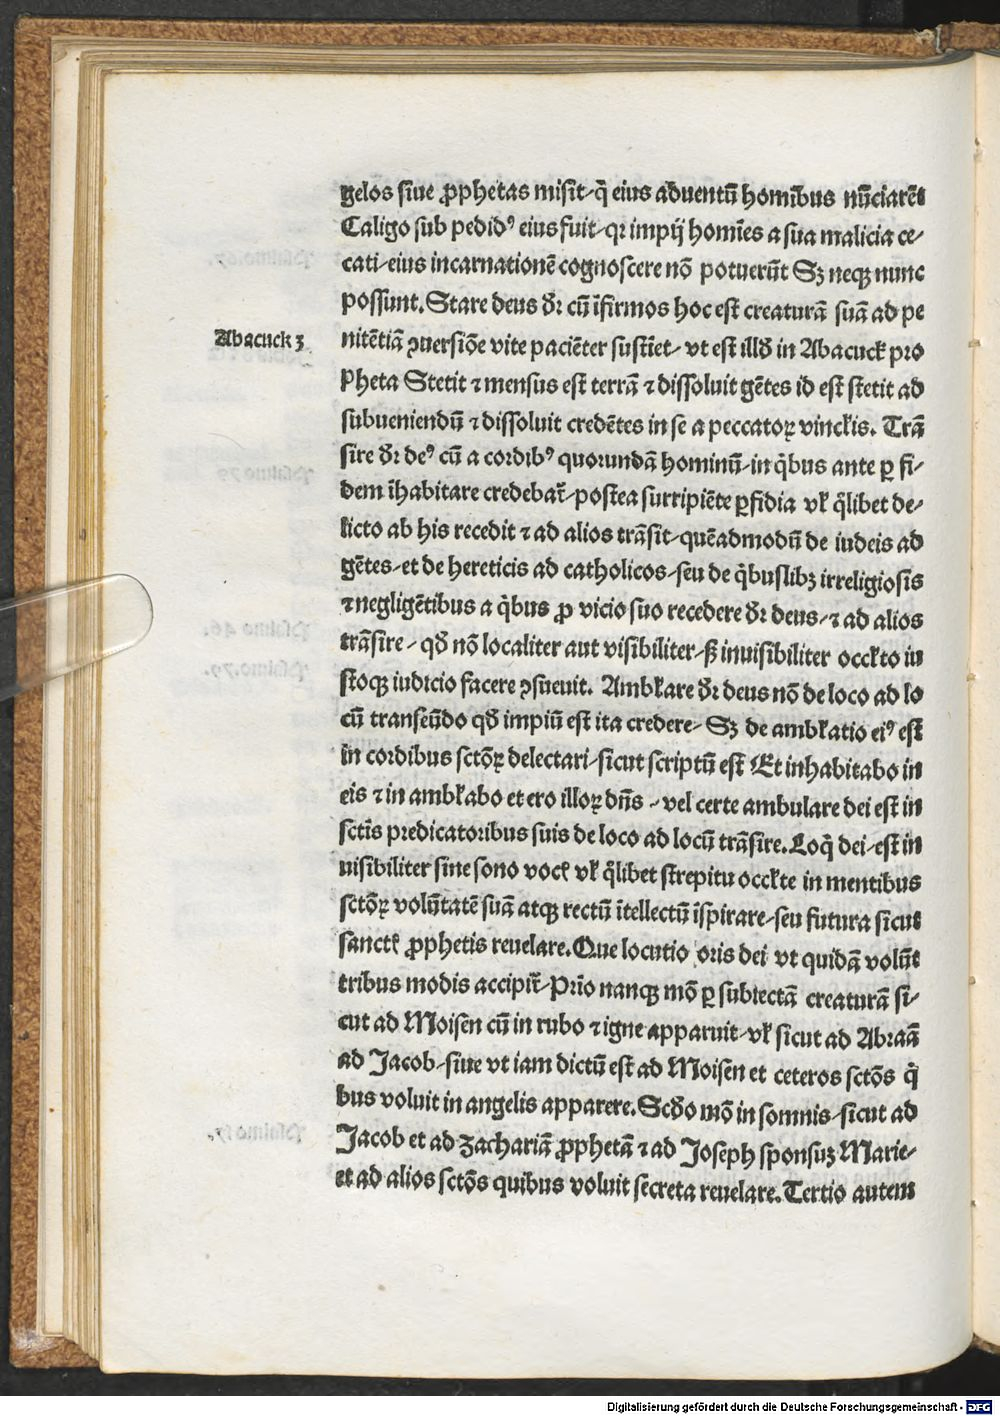 gelos siue ꝓphetas misit-q̄ eius aduentū homībus nūciarēt
Caligo sub pedidꝰ eius fuit-qꝛ impij homīes a sua malicia ce-
cati-eius incarnationē cognoscere nō potuerūt Sꝫ neqꝫ nunc
possunt. Stare deus dꝛ cū īfirmos hoc est creaturā suā ad pe
Abacuck 3
nitētiā ꝯuersiōe vite paciēter sustīet-vt est illđ in Abacuck pro
pheta Stetit ⁊ mensus est terrā ⁊ dissoluit gētes id est stetit ad
subueniendū ⁊ dissoluit credētes in se a peccatoꝝ vinclis. Trā
sire dꝛ deꝰ cū a cordibꝰ quorundā hominū-in q̄bus ante ꝑ fi-
dem īhabitare credebat̄-postea surripiēte ꝑfidia vł q̄libet de-
licto ab his recedit ⁊ ad alios trāsit-quēadmodū de iudeis ad
gētes-et de hereticis ad catholicos-seu de q̄buslibꝫ irreligiosis
⁊negligētibus a q̄bus ꝓ vicio suo recedere dꝛ deus-⁊ ad alios
trāsire-qđ nō localiter aut visibiliter-sꝫ inuisibiliter occło iu
stoqꝫ iudicio facere ꝯsueuit. Ambłare dꝛ deus nō de loco ad lo
cū transeūdo qđ impiū est ita credere-Sꝫ de ambłatio eiꝰ est
in cordibus sctōꝝ delectari-sicut scriptū est Et inhabitabo in
eis ⁊ in ambłabo et ero illoꝝ dn̄s-vel certe ambulare dei est in
sctīs predicatoribus suis de loco ad locū trāsire. Loq̄ dei-est in
uisibiliter sine sono vocꝭ vł q̄libet strepitu occłte in mentibus
sctōꝝ volūtatē suā atqꝫ rectū ītellectū īspirare-seu futura sicut
sanctꝭ ꝓphetis reuelare. Que locutio oris dei vt quidā volūt
tribus modis accipit̄-Prīo nanqꝫ mō ꝑ subiectā creaturā si-
cut ad Moisen cū in rubo ⁊ igne apparuit-vł sicut ad Abraā
ad Jacob-siue vt iam dictū est ad Moisen et ceteros sctōs q̄
bus voluit in angelis apparere. Scđo mō in somnis-sicut ad
Jacob et ad zachariā ꝓphetā ⁊ ad Joseph sponsuꝫ Marie-
et ad alios sctōs quibus voluit secreta reuelare. Tertio autem
Digitalisierung gefördert durch die Deutsche Forschungsgemeinschaft - DFG